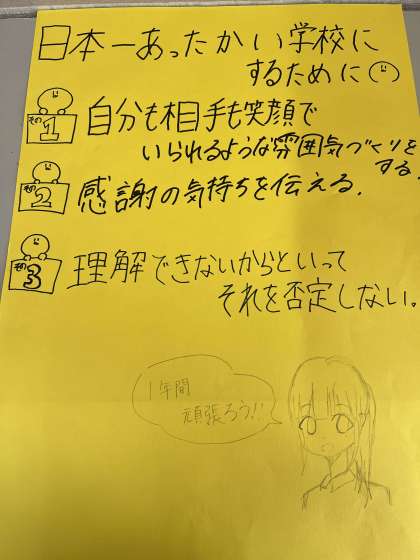 日本一あったかい学校に
するために
その1
自分も相手も笑顔で
いられるような雰囲気づくりを
する.
その2
感謝の気持ちを伝える.
その3
理解できないからといって
それを否定しない。
1年間
頑張ろう!!